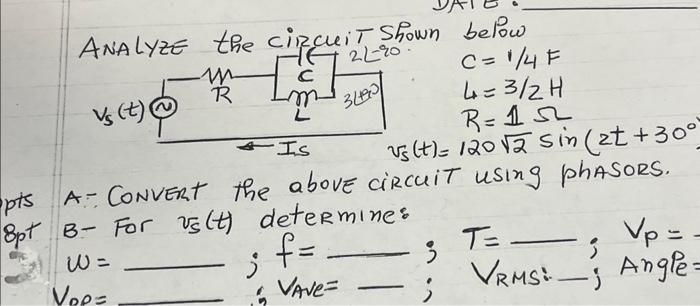 DATE:
ANALYZE the circuiT Shown below
C 2∠-90° C = 1/4 F
R L 3∠+90 L = 3/2 H
Vs(t) R = 1 Ω
Is vs(t) = 120√2 sin(2t + 30°)
pts A- CONVERT the above circuiT using phASORS.
8pt B- For vs(t) determine:
W = ; f = ; T = ; Vp =
VPP = ; VAVE = ; VRMS: ; Angle =